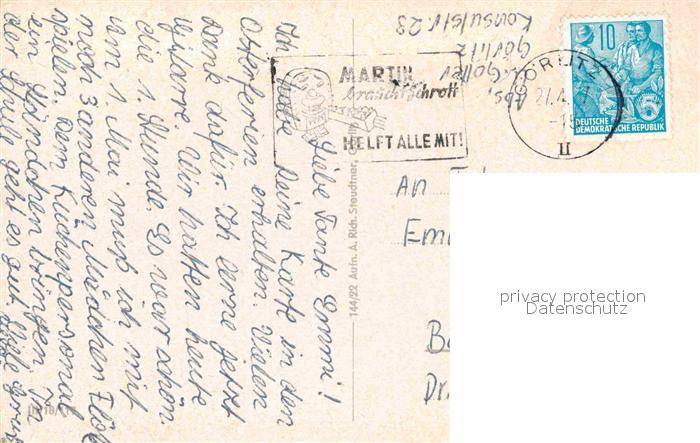 Liebe Tante Emmi!
Ich habe deine Karte in den
Osterferien erhalten. Vielen
Dank dafür. Ich lerne jetzt
Gitarre. Wir hatten heute
die 1. Stunde. Es war schön.
Am 1. Mai muß ich mit
noch 3 anderen Mädchen Flöte
spielen, dem Küchenpersonal
ein Ständchen bringen. In
der Schule geht es gut. Viele Grüße
144/22 Aufn. A. Rich. Steudtner,
Abs.
Görlitz
Konsulstr. 23
MARTIN
braucht Schrott
HELFT ALLE MIT!
GÖRLITZ
II
10
DEUTSCHE
DEMOKRATISCHE REPUBLIK
An
privacy protection
Datenschutz